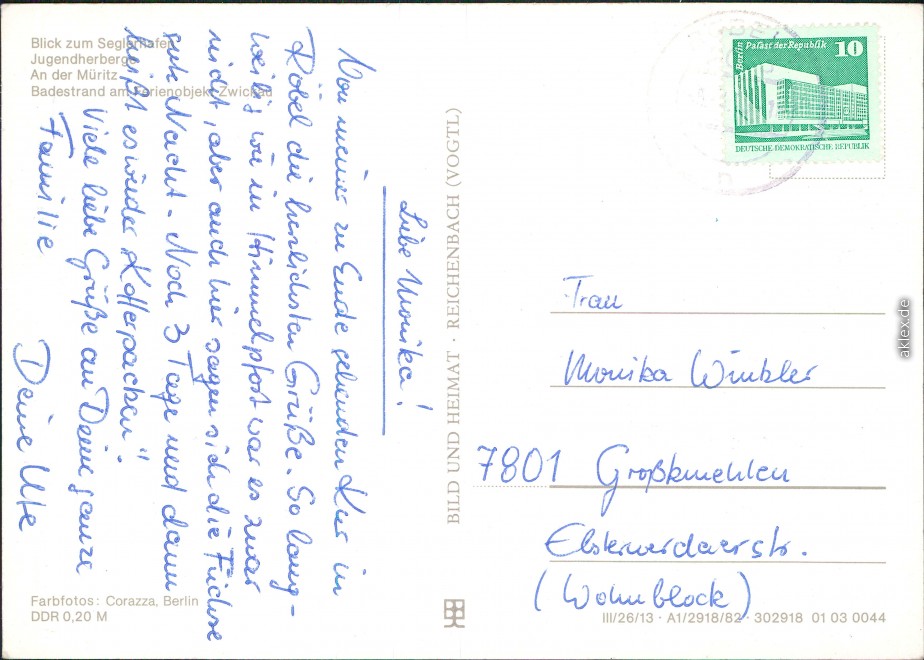 Blick zum Seglerhafen
Jugendherberge
An der Müritz
Badestrand am Ferienobjekt Zwickau
Liebe Monika!
Von meiner zu Ende gehenden Kur in
Röbel die herzlichsten Grüße. So lang-
weilig wie in Himmelpfort war es zwar
nicht, aber auch hier sagen sich die Füchse
gute Nacht. Noch 3 Tage und dann
heißt es wieder „Kofferpacken".
Viele liebe Grüße an Deine ganze
Familie
Deine Ute
Farbfotos: Corazza, Berlin
DDR 0,20 M
BILD UND HEIMAT · REICHENBACH (VOGTL)
Berlin Palast der Republik 10
DEUTSCHE DEMOKRATISCHE REPUBLIK
Frau
Monika Winkler
7801 Großkmehlen
Elsterwerdaerstr.
(Wohnblock)
III/26/13 · A1/2918/82 · 302918 01 03 0044
akpool.de